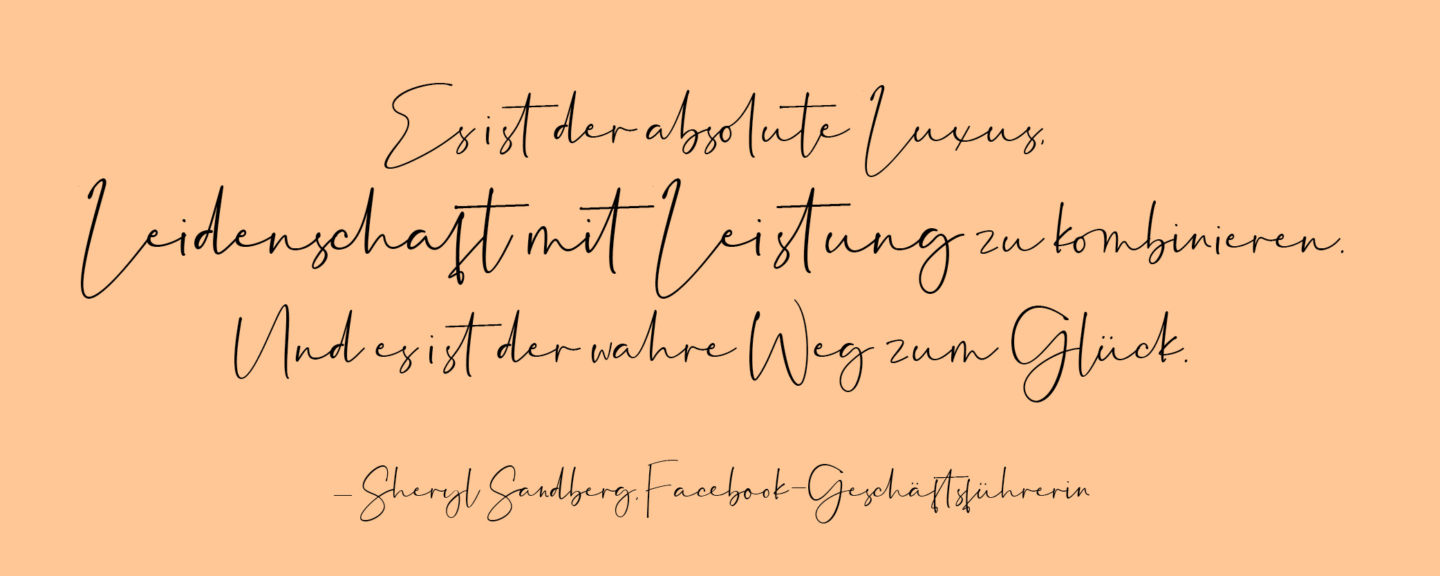 Es ist der absolute Luxus,
Leidenschaft mit Leistung zu kombinieren.
Und es ist der wahre Weg zum Glück.
– Sheryl Sandberg, Facebook-Geschäftsführerin